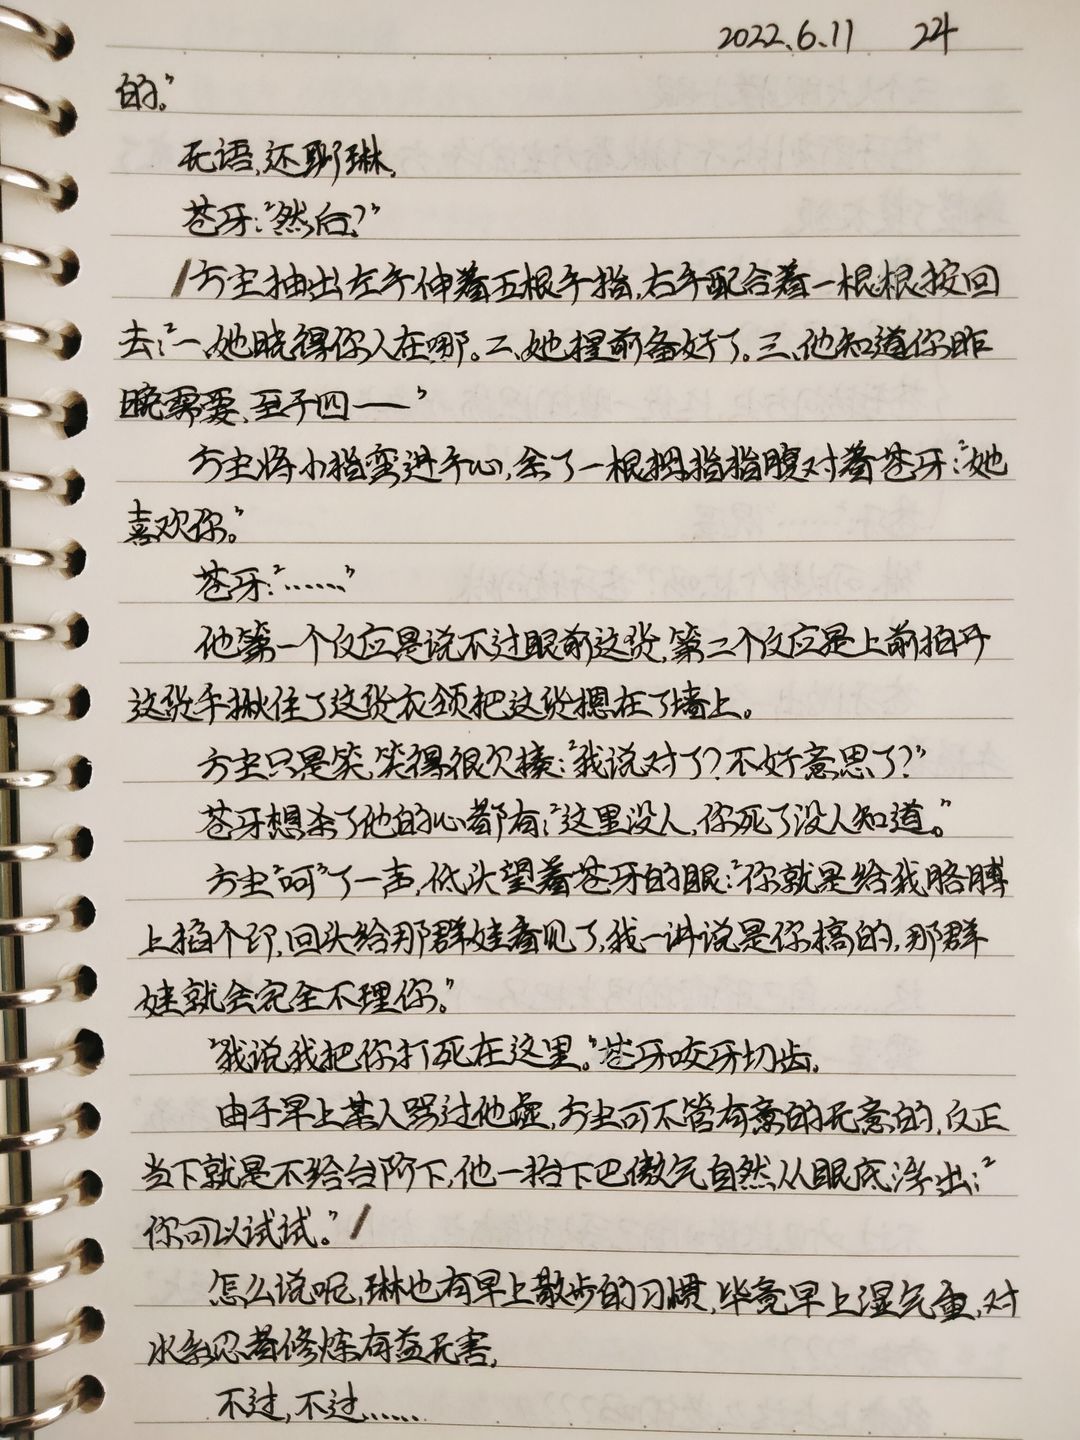 2022.6.11 24
的。”
无语,还耶琳,
苍牙:“然后?”
/方虫抽出左手伸着五根手指,右手配合着一根根按回
去:“一、她晓得你人在哪。二、她提前备好了。三、他知道你昨
晚需要、至于四——”
方虫将小指弯进手心,余了一根拇指指腹对着苍牙:“她
喜欢你。”
苍牙:“……”
他第一个反应是说不过眼前这货,第二个反应是上前拍开
这货手揪住了这货衣领把这货摁在了墙上。
方虫只是笑,笑得很欠揍:“我说对了?不好意思了?”
苍牙想杀了他的心都有:“这里没人,你死了没人知道。”
方虫“呵”了一声,低头望着苍牙的眼:“你就是给我胳膊
上掐个印,回头给那群娃看见了,我一讲说是你搞的,那群
娃就会完全不理你。”
“我说我把你打死在这里。”苍牙咬牙切齿。
由于早上某人骂过他虚,方虫可不管有意的无意的,反正
当下就是不给台阶下,他一抬下巴傲气自然从眼底浮出:“
你可以试试。”/
怎么说呢,琳也有早上散步的习惯,毕竟早上湿气重,对
水系忍者修炼有益无害,
不过,不过……